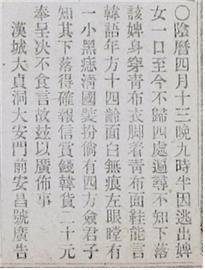 〇陰曆四月十三晩九時半因逃出婢
女一口至今不歸四處遍尋不知下落
該婢身穿青布衣脚着青布面鞋能言
韓語年方十四齡面白無痕左眼瞠有
一小黑痣淸國裝扮倘有四方僉君子
知其下落得確報信賞錢韓貨二十元
奉呈决不食言故玆以廣佈事
漢城大貞洞大安門前安昌號廣告